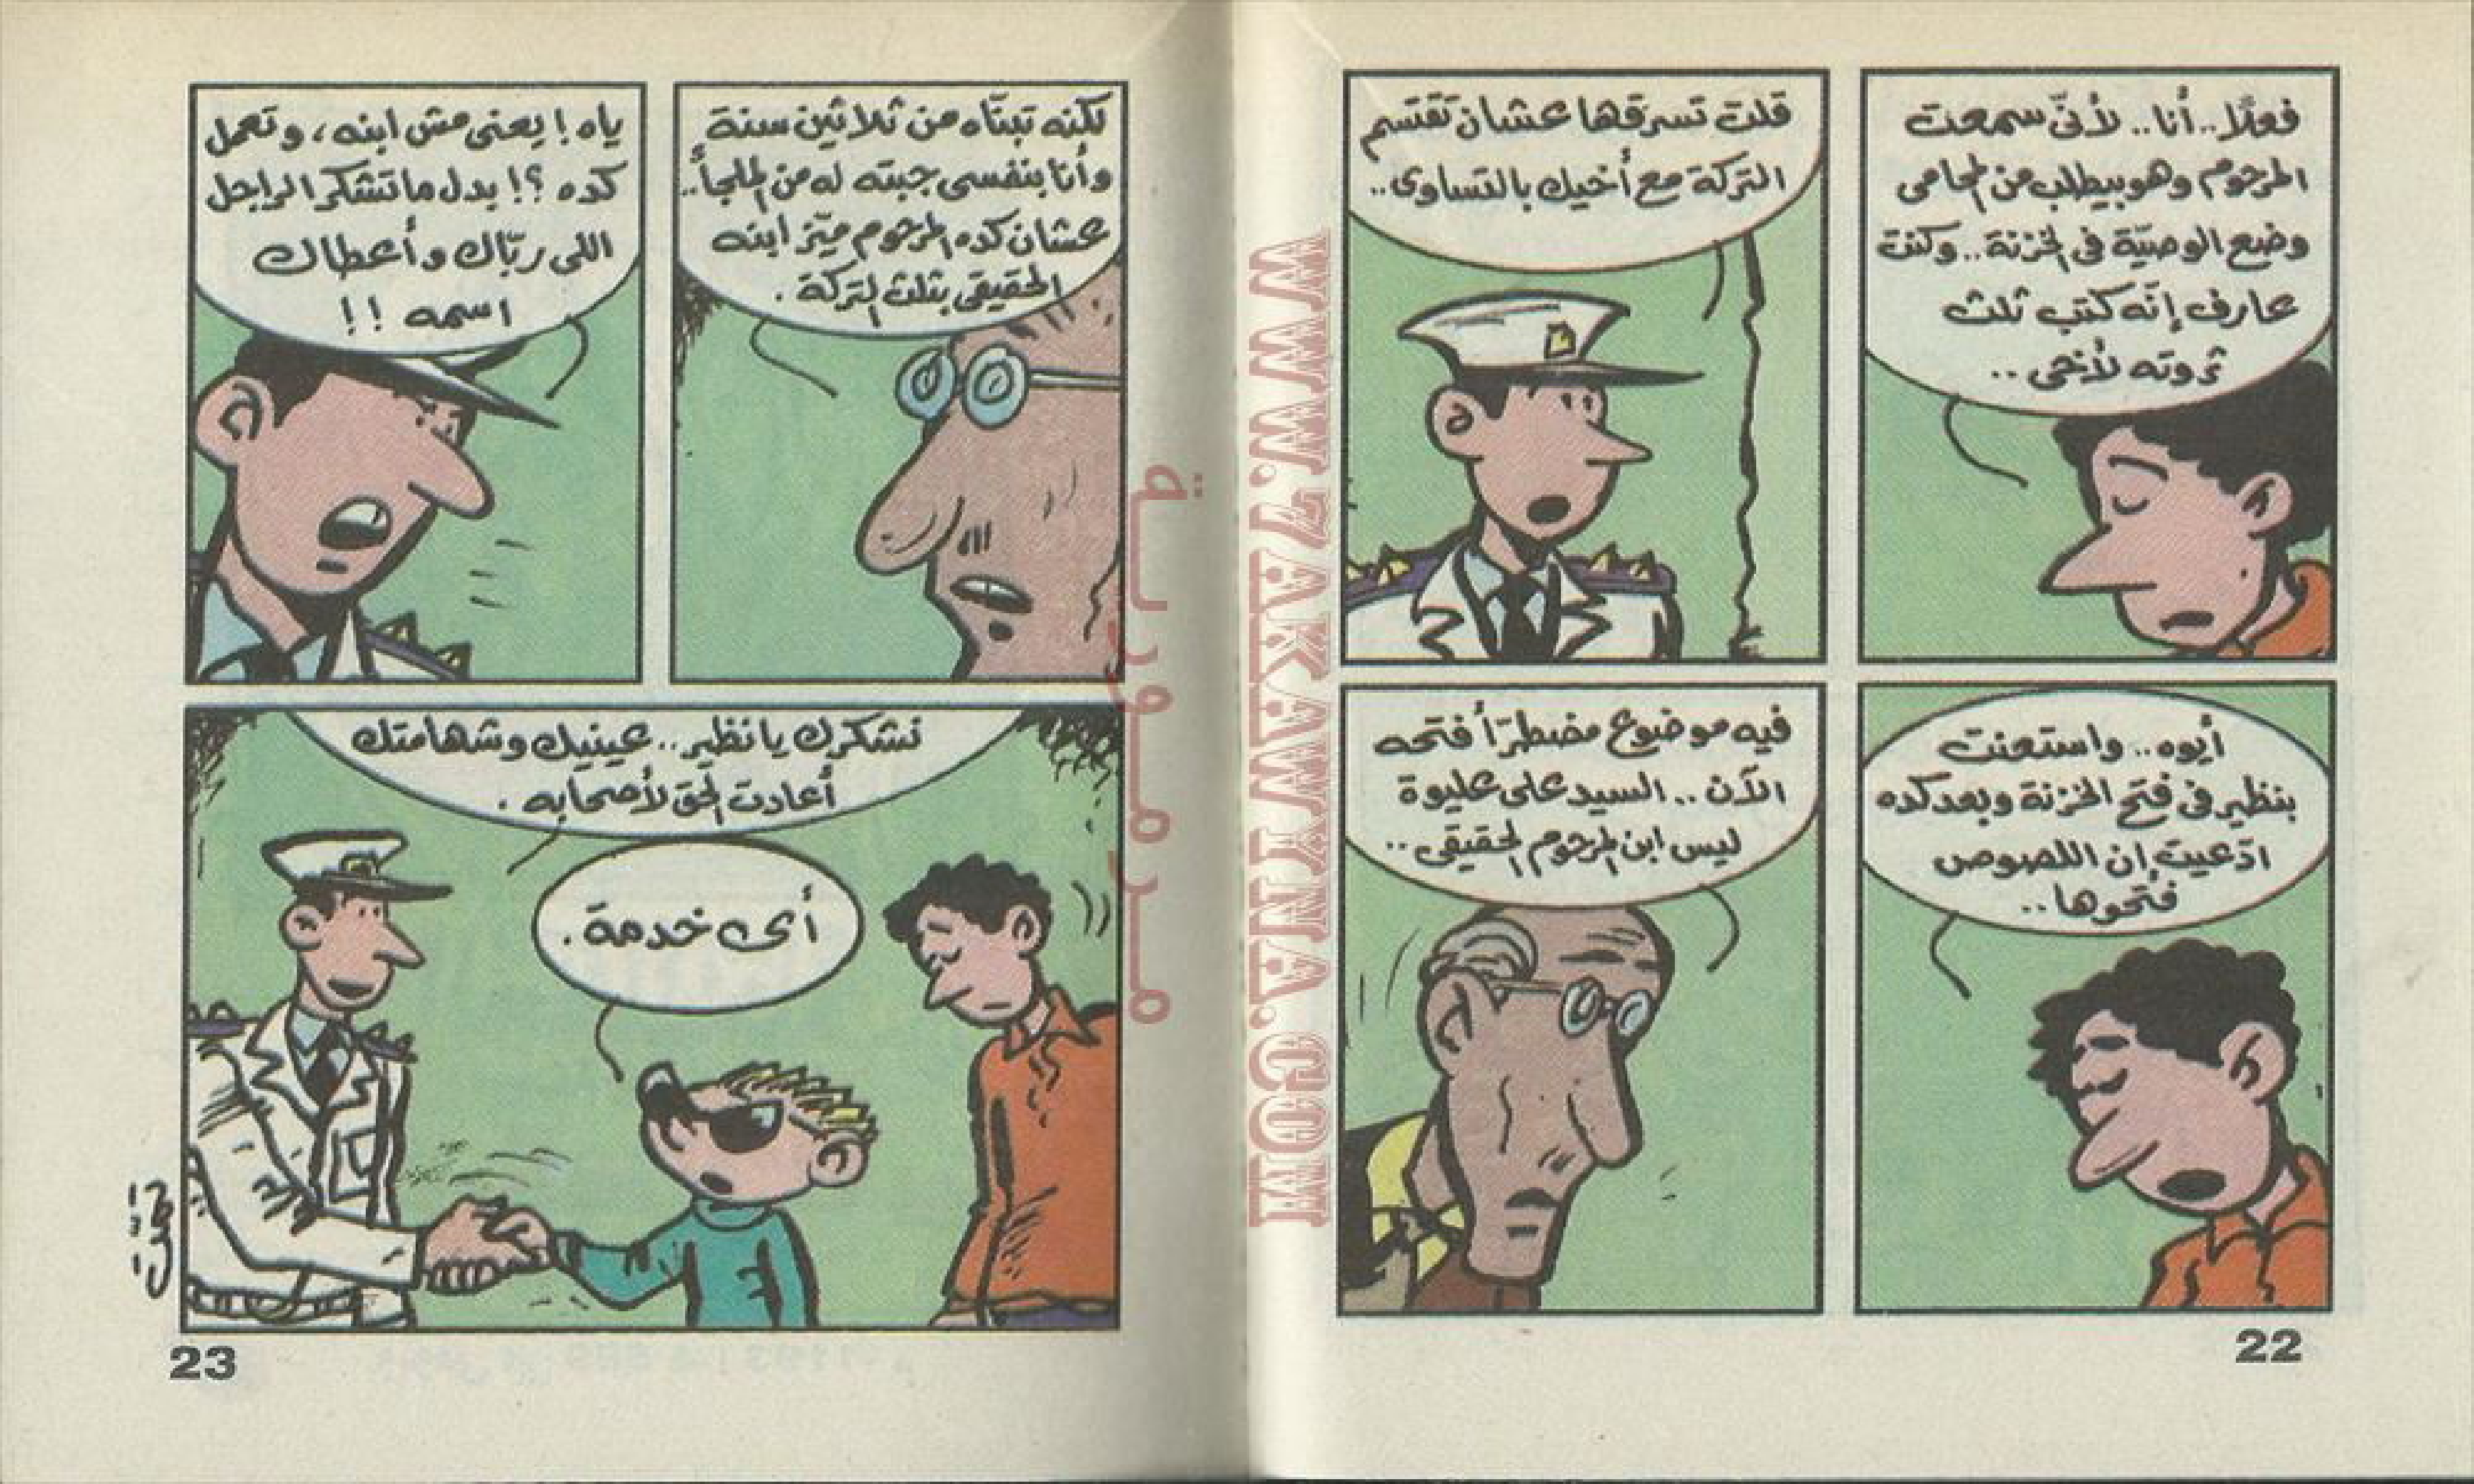 فعلًا.. أنا.. لأنّى سمعت
المرحوم وهو بيطلب من المحامى
وضع الوصيّة فى الخزنة.. وكنت
عارف إنّه كتب ثلث
ثروته لأخى..
قلت تسرقها عشان تقتسم
التركة مع أخيك بالتساوى..
أيوه.. واستعنت
بنظير فى فتح الخزنة وبعد كده
ادّعيت إن اللصوص
فتحوها..
فيه موضوع مضطرّاً أفتحه
الآن.. السيد على عليوة
ليس ابن المرحوم الحقيقى..
22
لكنه تبنّاه من ثلاثين سنة
وأنا بنفسى جبته له من الملجأ..
عشان كده المرحوم ميّز ابنه
الحقيقى بثلث التركة.
ياه! يعنى مش ابنه، وتعمل
كده؟! بدل ما تشكر الراجل
اللى ربّاك وأعطاك
اسمه!!
نشكرك يا نظير.. عينيك وشهامتك
أعادت الحق لأصحابه.
أى خدمة.
23